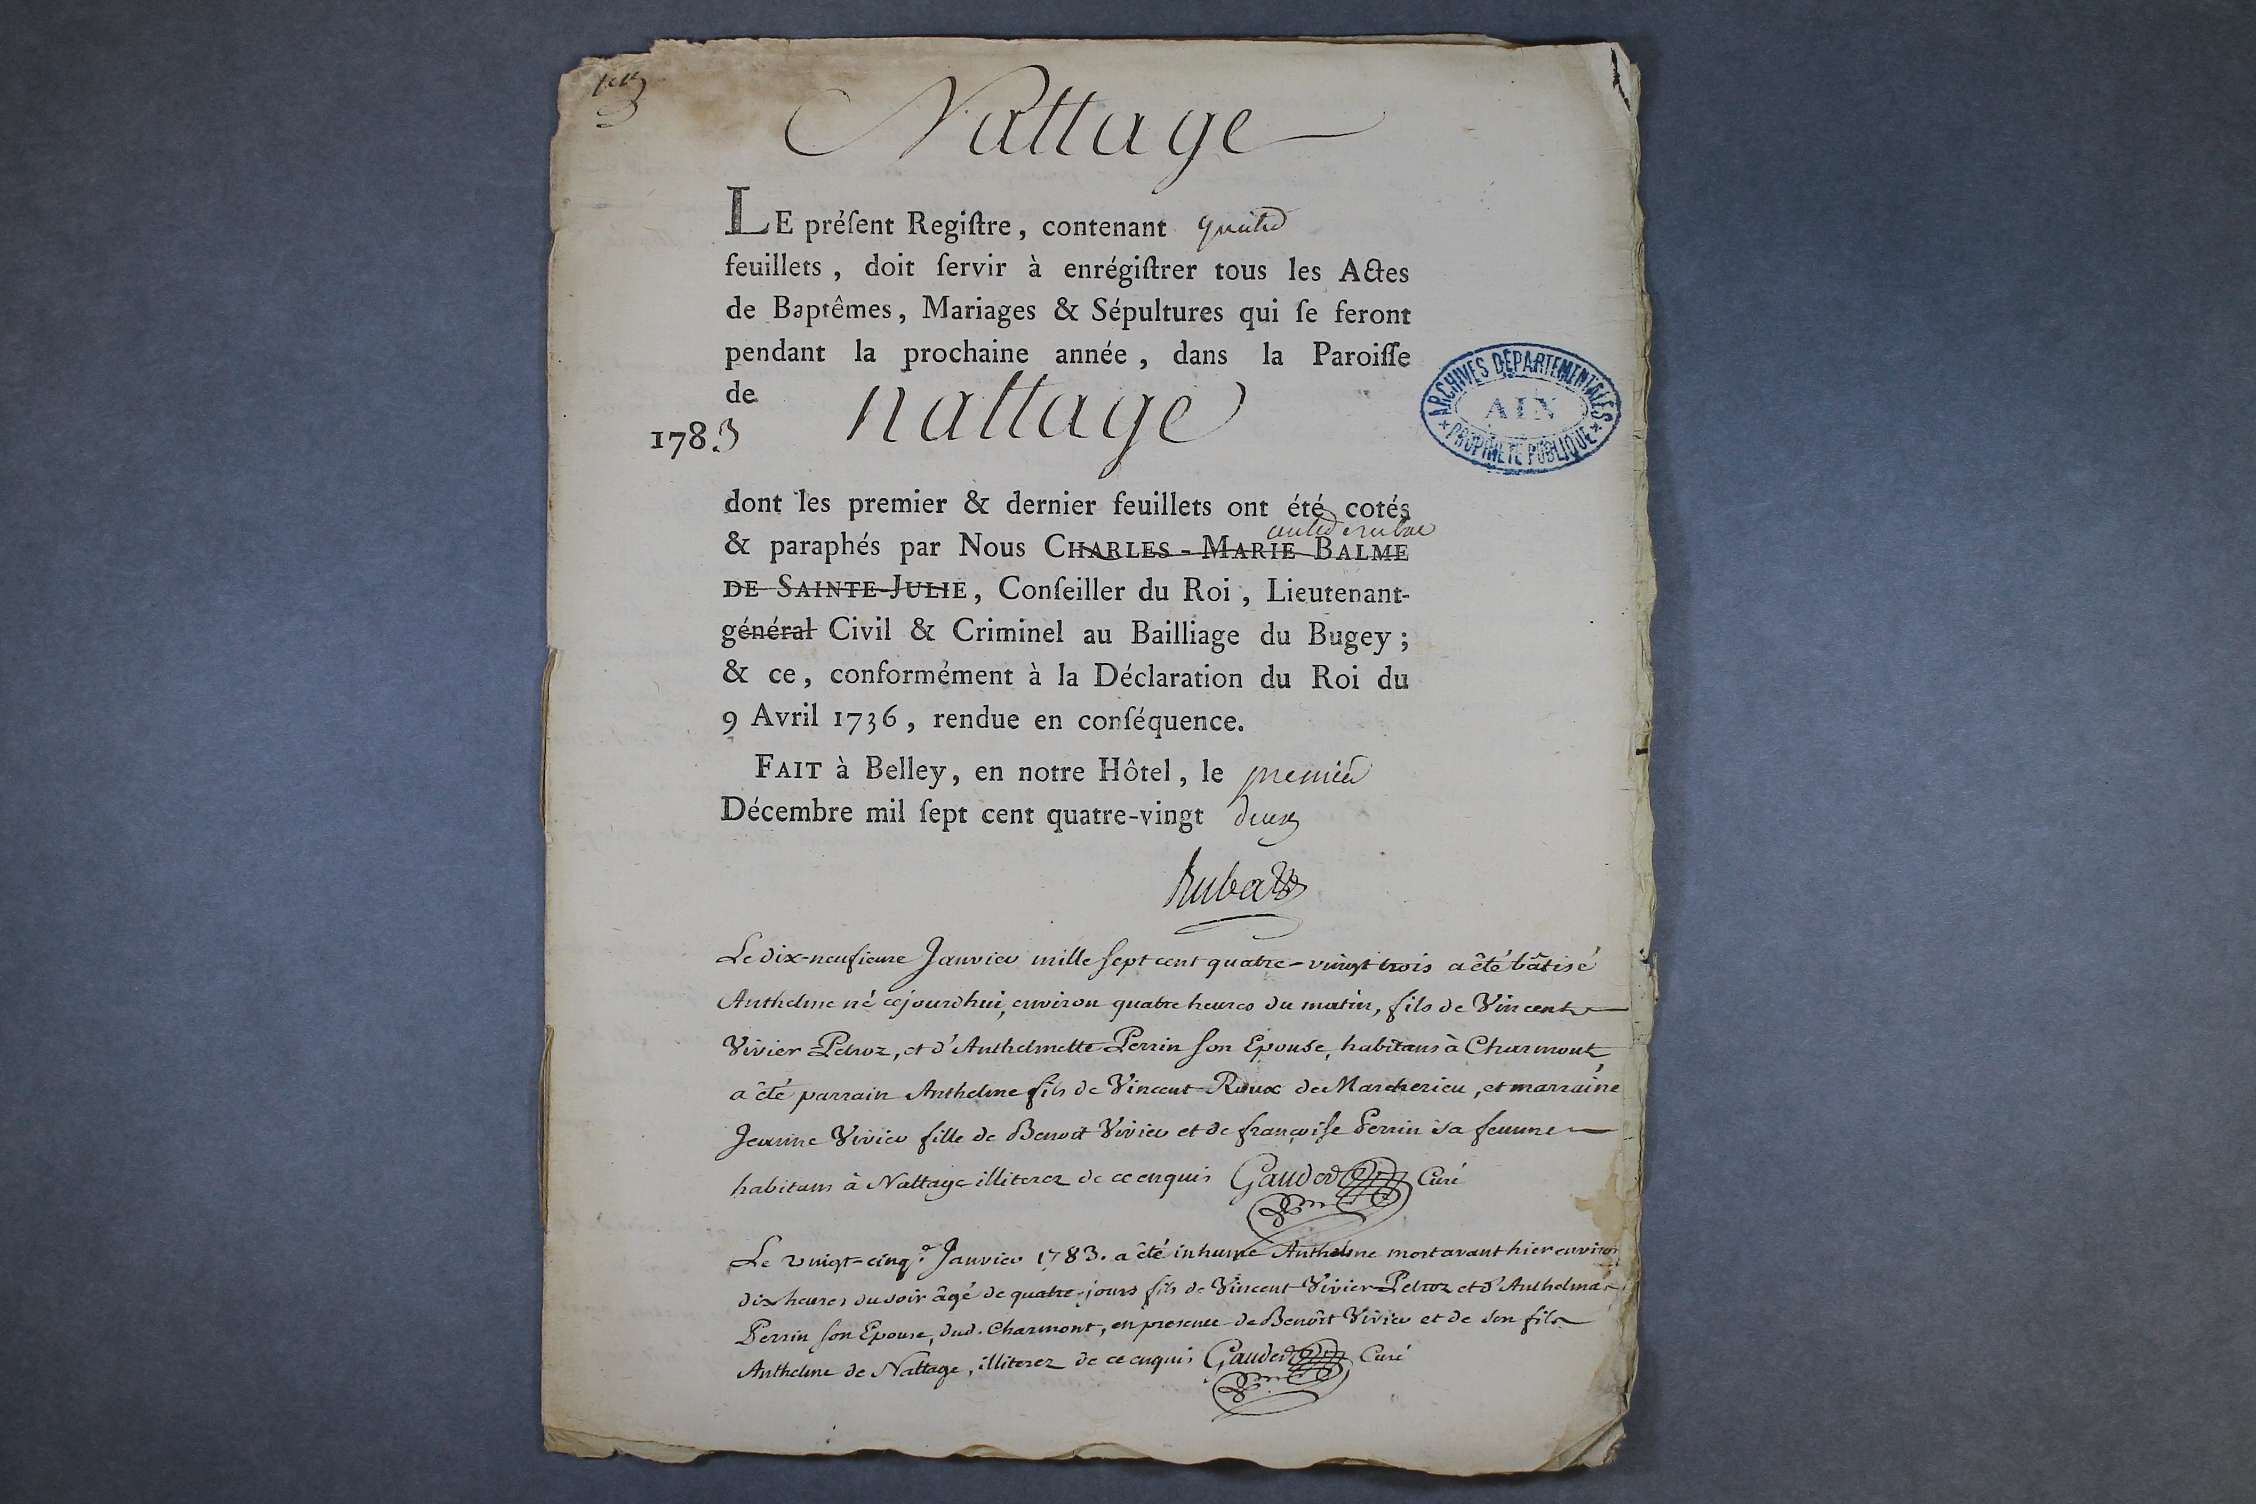 Nattage
LE préſent Regiſtre, contenant quatre
feuillets, doit ſervir à enrégiſtrer tous les Actes
de Baptêmes, Mariages & Sépultures qui ſe feront
pendant la prochaine année, dans la Paroiſſe
de nattage
1783
ARCHIVES DÉPARTEMENTALES
AIN
PROPRIÉTÉ PUBLIQUE
dont les premier & dernier feuillets ont été cotés
& paraphés par Nous CHARLES-MARIE BALME
DE SAINTE-JULIE, Conſeiller du Roi, Lieutenant-
général Civil & Criminel au Bailliage du Bugey;
& ce, conformément à la Déclaration du Roi du
9 Avril 1736, rendue en conſéquence.
FAIT à Belley, en notre Hôtel, le premier
Décembre mil ſept cent quatre-vingt deux
Rubat
Le dix-neufieme Janvier mille sept cent quatre-vingt trois a êté bâtisé
Anthelme né cejourdhui, environ quatre heures du matin, fils de Vincent
Vivier-Petroz, et d'Anthelmette Perrin son Epouse, habitans à Charmont,
a êté parrain Anthelme fils de Vincent Roux de Marcherieu, et marraine
Jeanne Vivier fille de Benoit Vivier et de françoise Perrin sa femme
habitans à Nattage illiterez de ce enquis Gauder Curé
Le vingt-cinq.e Janvier 1783. a êté inhumé Anthelme mort avant hier environ
dix heures du soir âgé de quatre jours fils de Vincent Vivier-Petroz et d'
Perrin son Epouse, dud. Charmont, en presence de Benoît Vivier et de son fils
Anthelme de Nattage, illiterez de ce enquis Gauder Curé